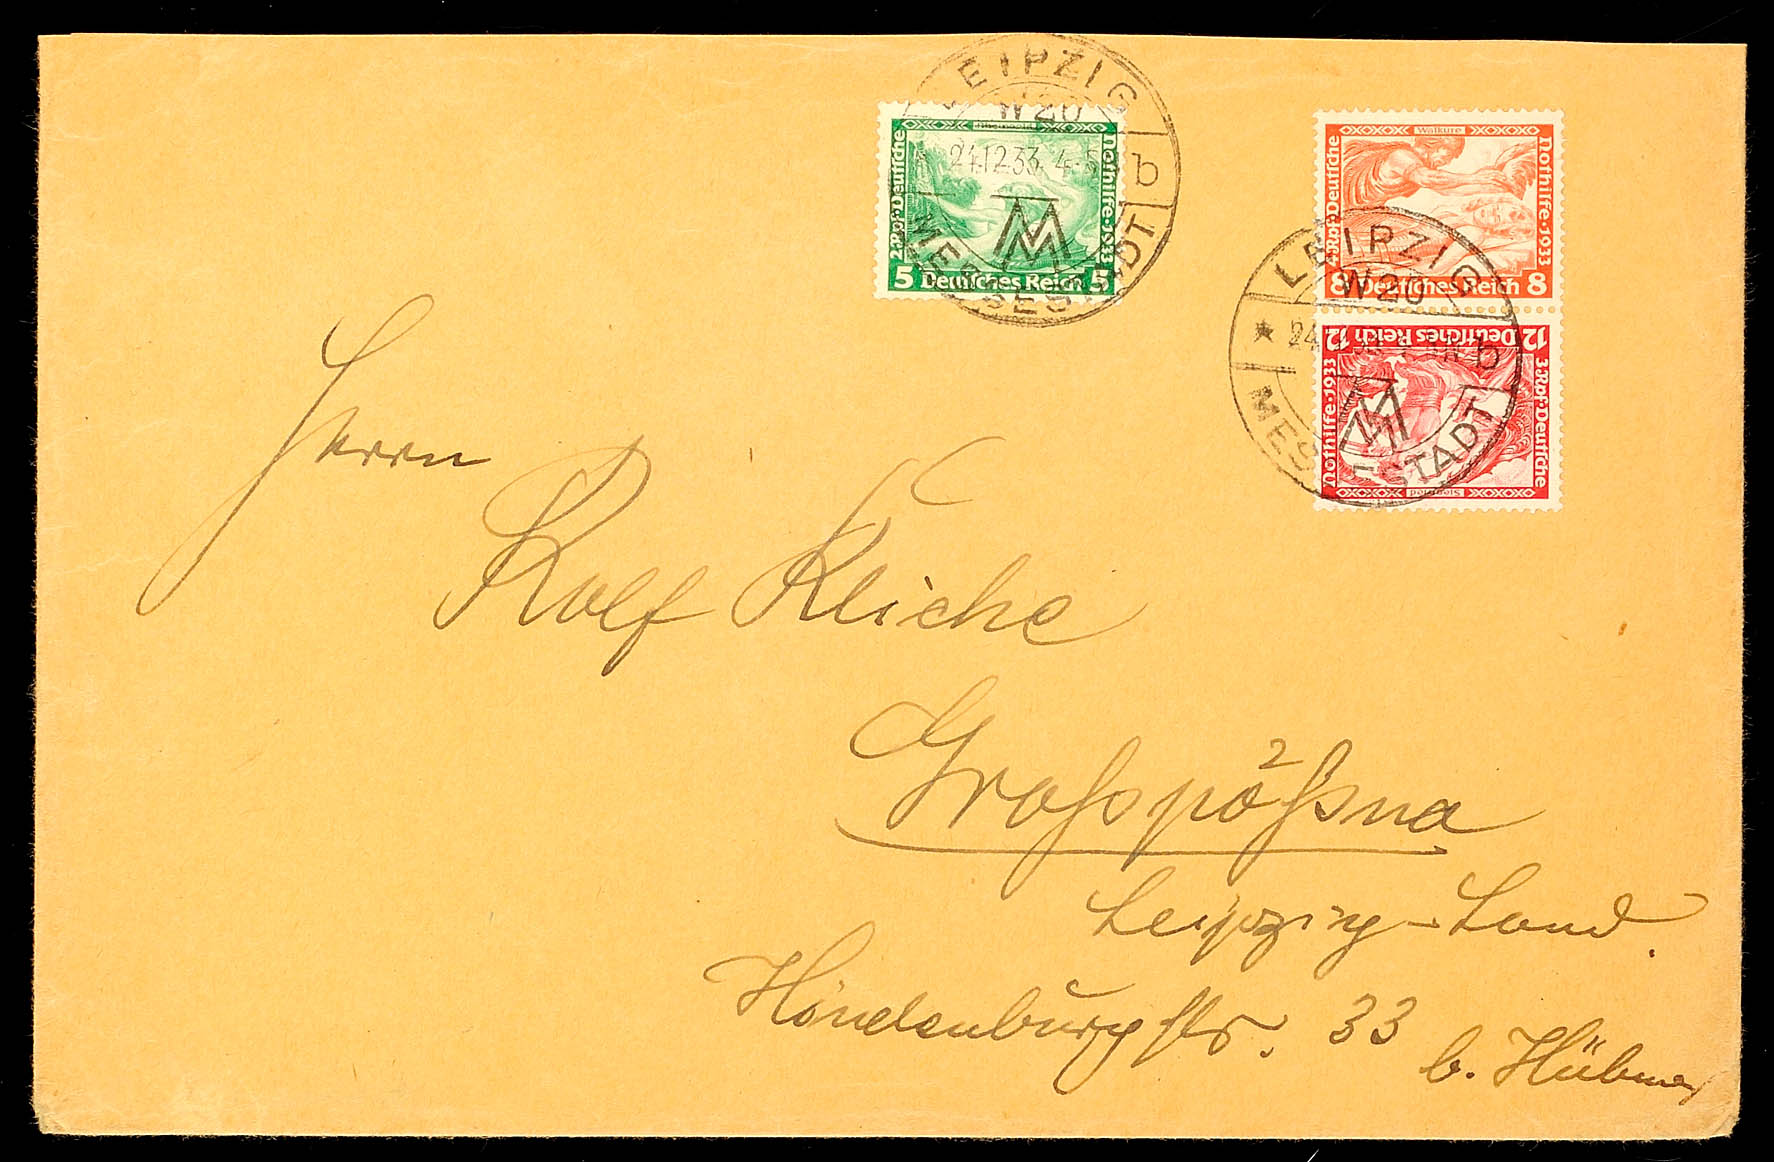 LEIPZIG
W 20
24.12.33. 4-5
b
MESSESTADT
MM
Rheingold
2+Rpf·Deutsche
Nothilfe·1933
5 Deutsches Reich 5
Walküre
4+Rpf·Deutsche
Nothilfe·1933
8 Deutsches Reich 8
LEIPZIG
W 20
b
MESSESTADT
MM
12 Deutsches Reich 12
Nothilfe·1933
3+Rpf·Deutsche
Siegfried
Herrn
Rolf Reiche
Großpößna
Leipzig-Land.
Hindenburgstr. 33
b. Hübner